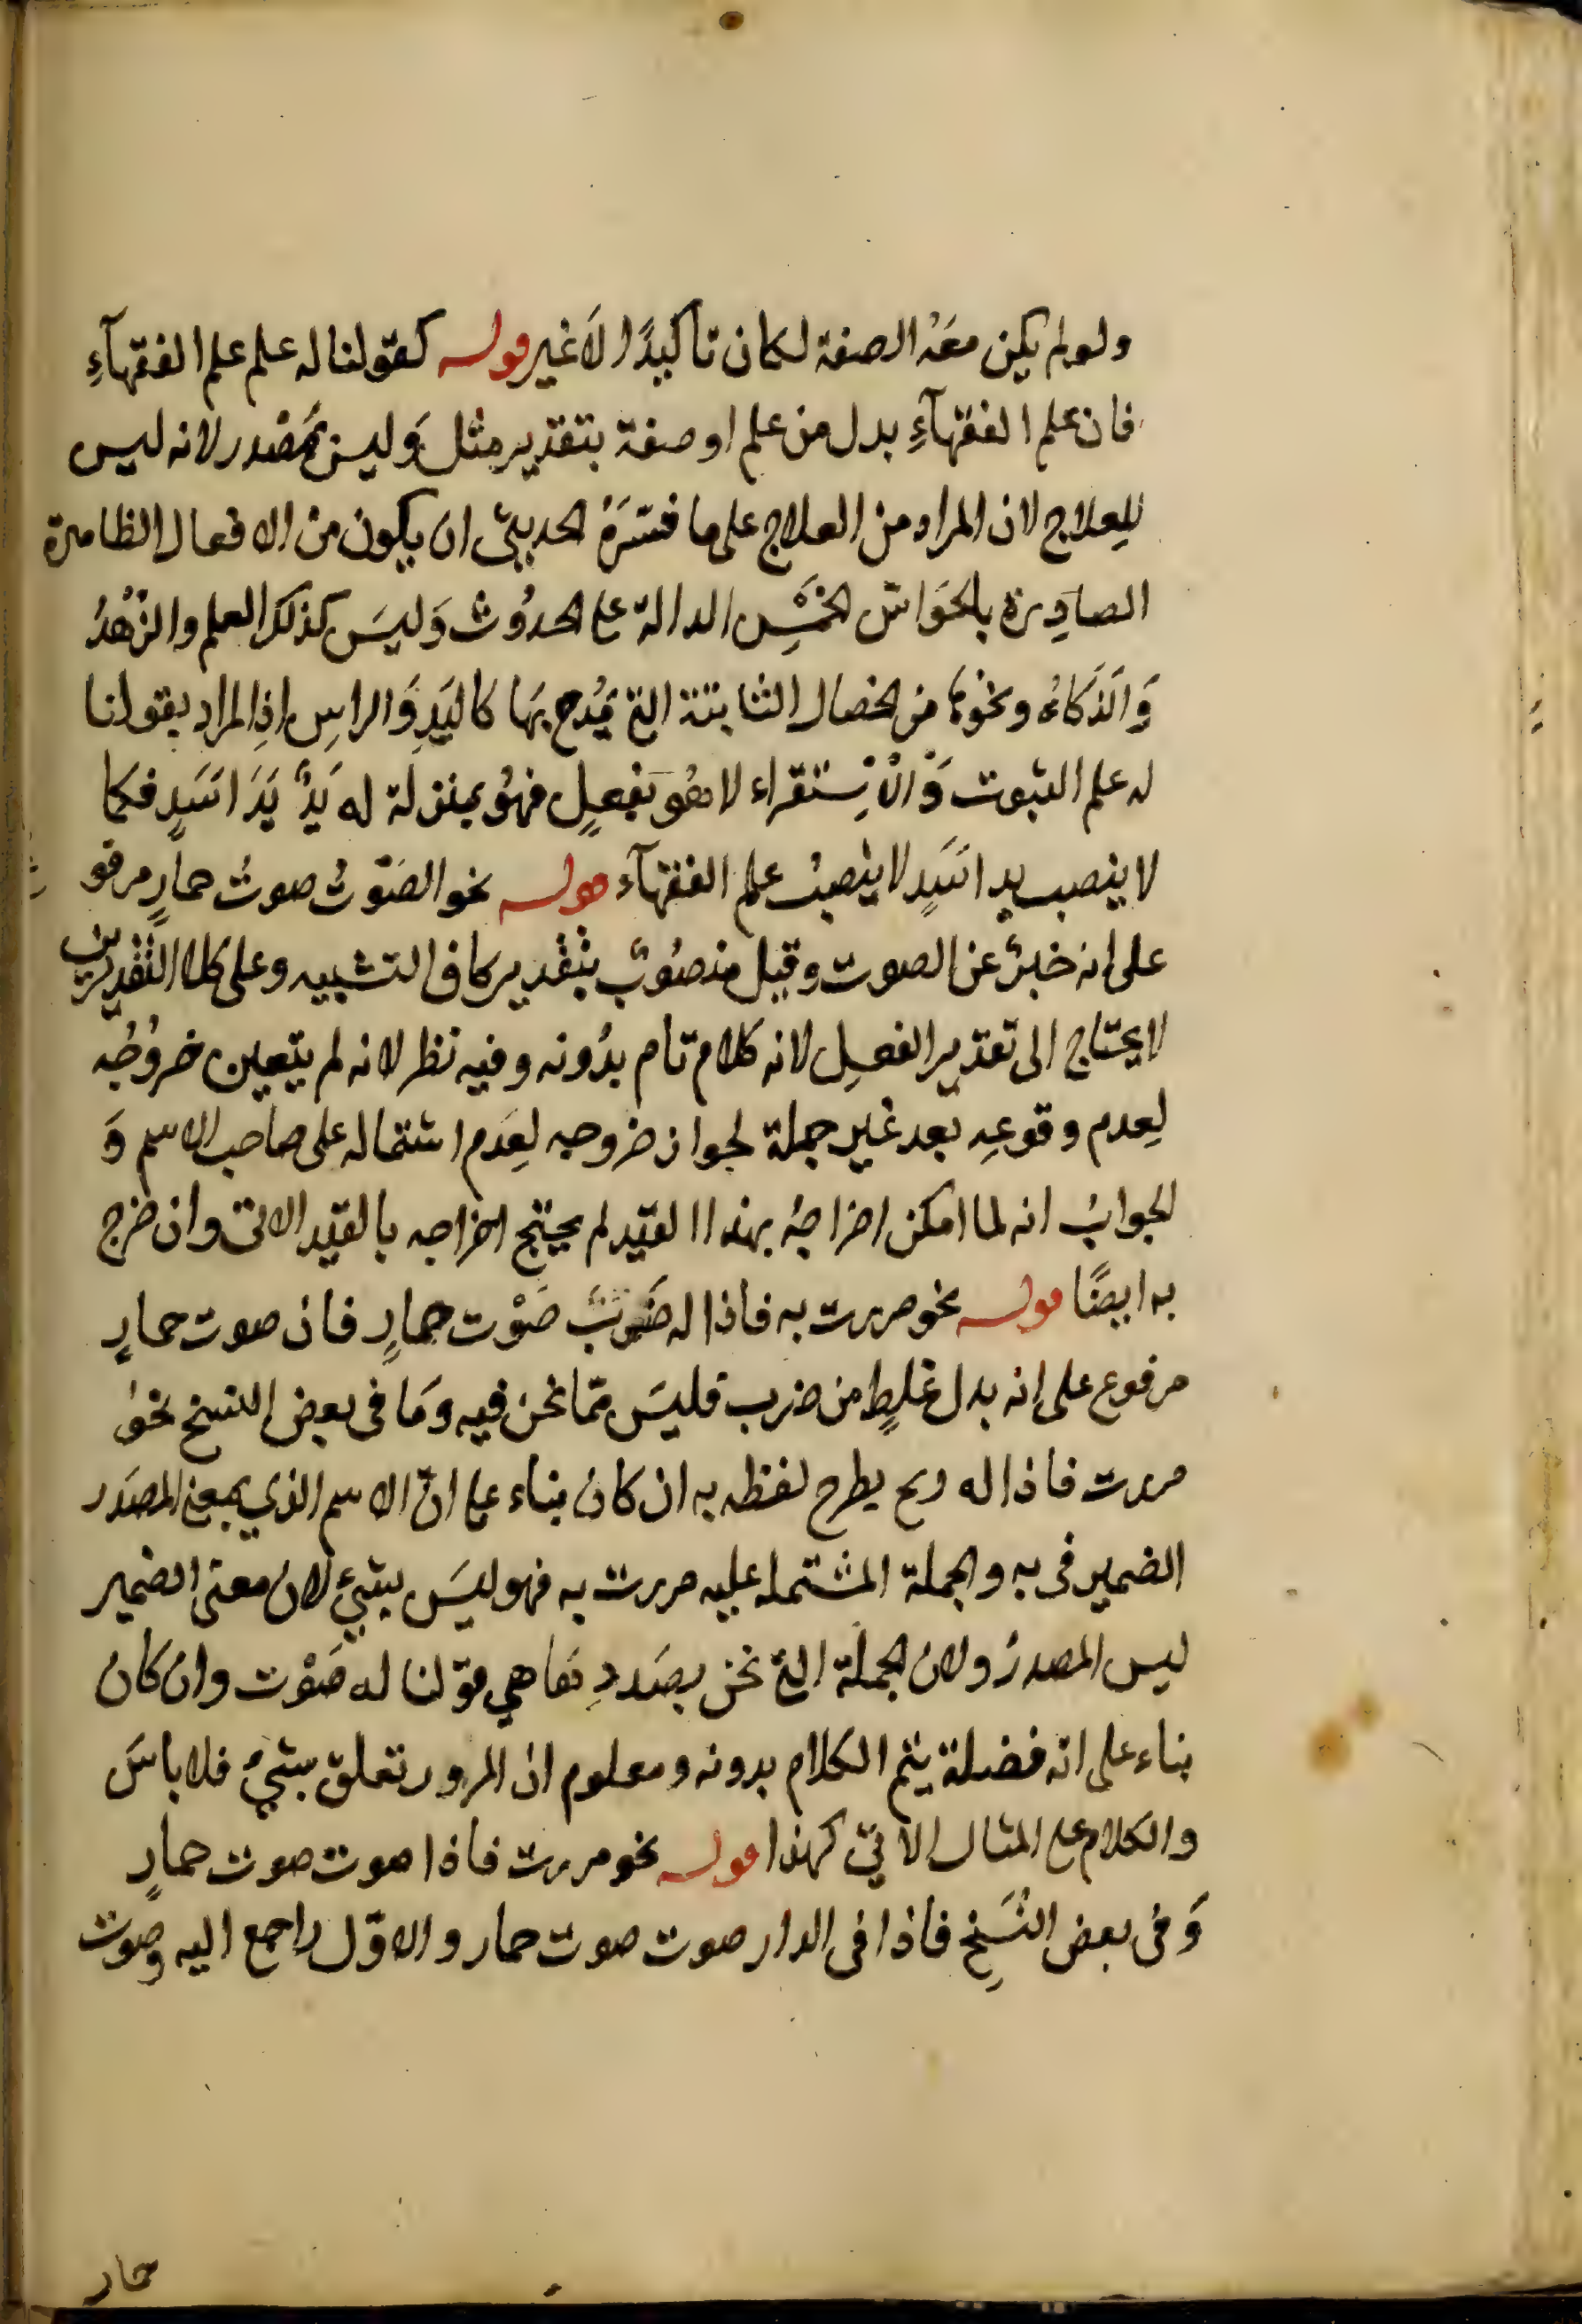 ولو لم يكن معه الصفة لكان تأكيدًا لا غير قوله كقولنا له علم علم الفقهآءِ
فان علم الفقهآءِ بدل من علم او صفة بتقدير مثل وَليس بمصْدر لانه ليس
للِعلاج لان المراد من العلاج على ما فسّرَهُ الحديثى ان يكون من الافعال الظاهرة
الصادِرة بالحَواسّ الخمْسِ الدالة على الحدُوث وَليسَ كذلك العلم والزُهْدُ
وَالذَكاءُ ونحْوها من الخصال الثابتة التى يُمْدح بها كاليَدِ وَالراسِ اذِ المراد بقولنا
له علم الثبوت وَالْاِسْتقراء لا هُوَ بفعلٍ فهوُ بمنزلة له يَدٌ يَدَ اسَدٍ فكما
لا ينصب يد اسَدٍ لا ينصبُ علم الفقهآء قوله نحو الصَوْتُ صوتُ حمارٍ مرفو
على انه خبرٌ عن الصوت وقيل منصُوبٌ بتقْدير كاف التشبيه وعلى كلا التقديرين
لا يحتاج الى تقدير الفعلِ لانه كلام تام بدُونه وفيه نظر لانه لم يتعين خروُجُه
لِعدم وقوعِه بعد غير جملة لجواز خروجه لِعدَم اشتماله على صاحب الاسم وَ
الجوابُ انه لما امكن اخراجهُ بهذا القيد لم يحتج اخراجه بالقيد الاتى وان خرج
به ايضًا قوله نحو مررت به فاذا له ضَربٌ صَوْت حمارٍ فان صوت حمارٍ
مرفوع على انه بدل غلطٍ من ضرب فليسَ ممّا نحن فيه وَما فى بعض النسخ نحو
مررت فاذا له ريح يطرح لفظه به ان كان بناء على انّ الاسم الذي بمعنى المصدَر
الضمير فى به والجملة المشتملة عليه مررت به فهو ليسَ بشئ لان معنى الضمير
ليس المصدرُ ولان الجملة التى نحن بصَددِ نفاهي قوْلنا له صَوْت وان كان
بناء على انه فضلة يتم الكلام بدونه ومعلوم ان المرور تعلق بشيْ فلا باسَ
والكلام على المثال الآتى كهذا قوله نحو مررت فاذا صوت صوت حمارٍ
وَفى بعض النُسَخِ فاذا فى الدار صوت صوت حمار والاوّل راجع اليه وصوت
حمار